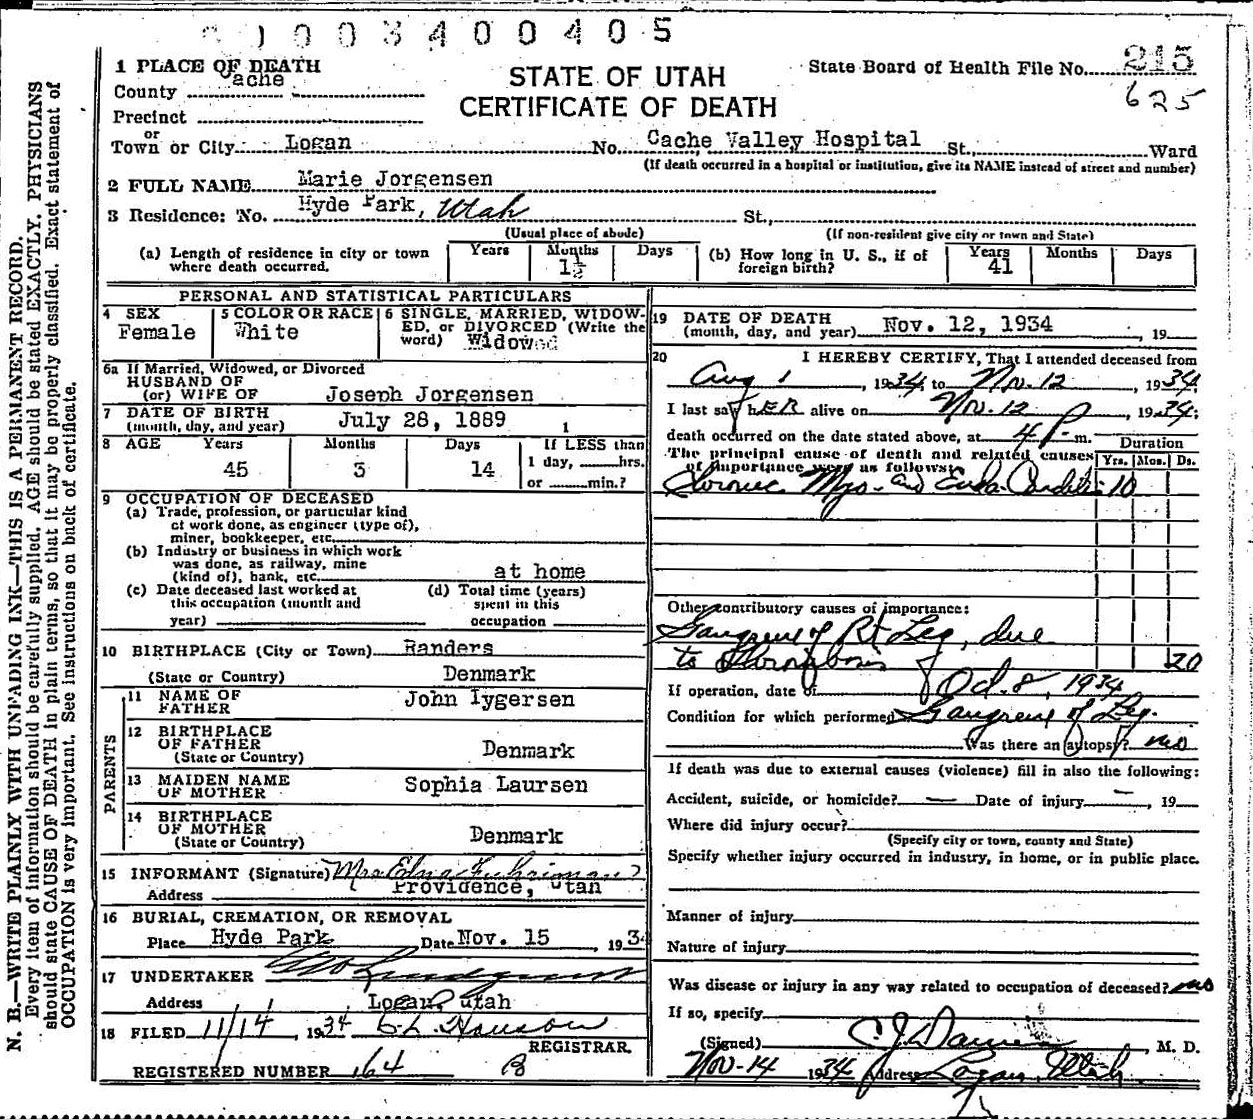 1003400405
1 PLACE OF DEATH
County Cache
STATE OF UTAH
CERTIFICATE OF DEATH
State Board of Health File No. 215
625
Precinct
or
Town or City Logan No. Cache Valley Hospital St., Ward
(If death occurred in a hospital or institution, give its NAME instead of street and number)
2 FULL NAME Marie Jorgensen
3 Residence: No. Hyde Park, Utah St.,
(Usual place of abode) (If non-resident give city or town and State)
(a) Length of residence in city or town where death occurred. Years Months 1½ Days
(b) How long in U. S., if of foreign birth? Years 41 Months Days
PERSONAL AND STATISTICAL PARTICULARS
4 SEX Female
5 COLOR OR RACE White
6 SINGLE, MARRIED, WIDOW-
ED, or DIVORCED (Write the
word) Widowed
6a If Married, Widowed, or Divorced
HUSBAND OF
(or) WIFE OF Joseph Jorgensen
7 DATE OF BIRTH
(month, day, and year) July 28, 1889 1
8 AGE Years Months Days If LESS than
45 3 14 1 day, hrs.
or min.?
9 OCCUPATION OF DECEASED
(a) Trade, profession, or particular kind
of work done, as engineer (type of),
miner, bookkeeper, etc.
(b) Industry or business in which work
was done, as railway, mine
(kind of), bank, etc. at home
(c) Date deceased last worked at
this occupation (month and
year)
(d) Total time (years)
spent in this
occupation
10 BIRTHPLACE (City or Town) Randers
(State or Country) Denmark
PARENTS
11 NAME OF
FATHER John Iygersen
12 BIRTHPLACE
OF FATHER
(State or Country) Denmark
13 MAIDEN NAME
OF MOTHER Sophia Laursen
14 BIRTHPLACE
OF MOTHER
(State or Country) Denmark
15 INFORMANT (Signature) Mrs Edna Fuhriman
Address Providence, Utah
16 BURIAL, CREMATION, OR REMOVAL
Place Hyde Park Date Nov. 15, 1934
17 UNDERTAKER
Address Logan, Utah
18 FILED 11/14, 1934 C. L. Hanson
REGISTRAR.
REGISTERED NUMBER 164 B
19 DATE OF DEATH
(month, day, and year) Nov. 12, 1934, 19
20 I HEREBY CERTIFY, That I attended deceased from
Aug 1, 1934, to Nov. 12, 1934,
I last saw hER alive on Nov. 12, 1934;
death occurred on the date stated above, at 4 P m.
The principal cause of death and related causes
of importance were as follows:
Duration
Yrs. Mos. Ds.
Chronic Myo- and Endo-Carditis 10
Other contributory causes of importance:
Gangrene of Rt Leg, due
to Thrombosis 20
If operation, date of Oct. 8, 1934
Condition for which performed Gangrene of Leg.
Was there an autopsy? no
If death was due to external causes (violence) fill in also the following:
Accident, suicide, or homicide? — Date of injury —, 19
Where did injury occur?
(Specify city or town, county and State)
Specify whether injury occurred in industry, in home, or in public place.
Manner of injury
Nature of injury
Was disease or injury in any way related to occupation of deceased? no
If so, specify
(Signed) C J Daines, M. D.
Nov-14 1934 Address Logan, Utah.
N. B.—WRITE PLAINLY WITH UNFADING INK—THIS IS A PERMANENT RECORD.
Every item of information should be carefully supplied. AGE should be stated EXACTLY. PHYSICIANS
should state CAUSE OF DEATH in plain terms, so that it may be properly classified. Exact statement of
OCCUPATION is very important. See instructions on back of certificate.